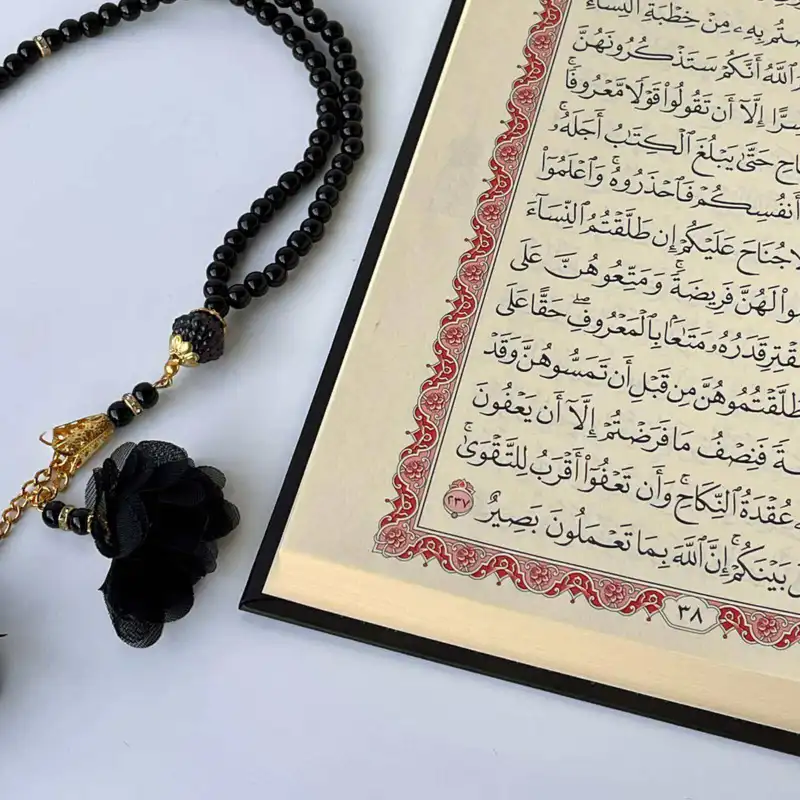 بِهِۦ مِنْ خِطْبَةِ ٱلنِّسَآءِ
ٱللَّهُ أَنَّكُمْ سَتَذْكُرُونَهُنَّ
سِرًّا إِلَّآ أَن تَقُولُوا۟ قَوْلًا مَّعْرُوفًا ۚ
حَتَّىٰ يَبْلُغَ ٱلْكِتَٰبُ أَجَلَهُۥ ۚ
أَنفُسِكُمْ فَٱحْذَرُوهُ ۚ وَٱعْلَمُوٓا۟
لَا جُنَاحَ عَلَيْكُمْ إِن طَلَّقْتُمُ ٱلنِّسَآءَ
لَهُنَّ فَرِيضَةً ۚ وَمَتِّعُوهُنَّ عَلَى
قَدَرُهُۥ مَتَٰعًۢا بِٱلْمَعْرُوفِ ۖ حَقًّا عَلَى
طَلَّقْتُمُوهُنَّ مِن قَبْلِ أَن تَمَسُّوهُنَّ وَقَدْ
فَنِصْفُ مَا فَرَضْتُمْ إِلَّآ أَن يَعْفُونَ
عُقْدَةُ ٱلنِّكَاحِ ۚ وَأَن تَعْفُوٓا۟ أَقْرَبُ لِلتَّقْوَىٰ ۚ
بَيْنَكُمْ ۚ إِنَّ ٱللَّهَ بِمَا تَعْمَلُونَ بَصِيرٌ ٢٣٧
٣٨